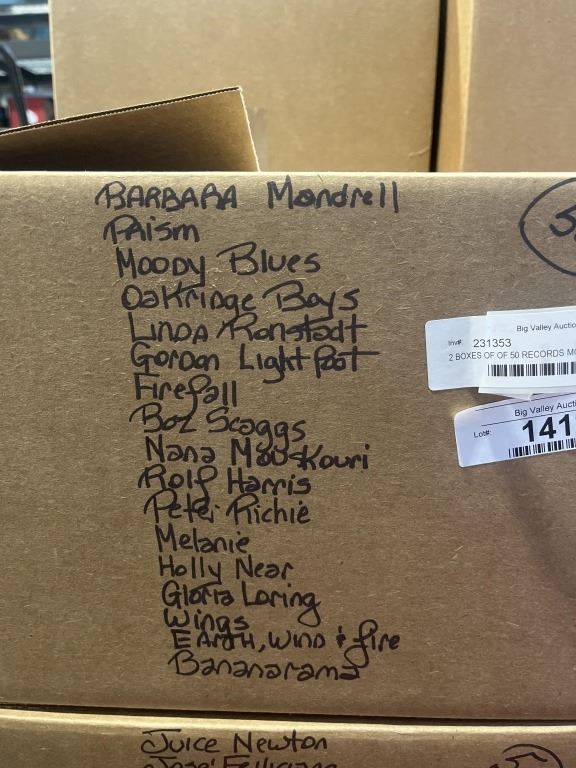 BARBARA Mandrell
Prism
Moody Blues
Oakridge Boys
Linda Ronstadt
Gordon Lightfoot
Firefall
Boz Scaggs
Nana Mouskouri
Rolf Harris
Pete Richie
Melanie
Holly Near
Gloria Loring
Wings
EARTH, WIND & fire
Bananarama
Big Valley Auctio
Inv#: 231353
2 BOXES OF OF 50 RECORDS MO
Big Valley Aucti
Lot#: 141
Juice Newton
José Feliciano